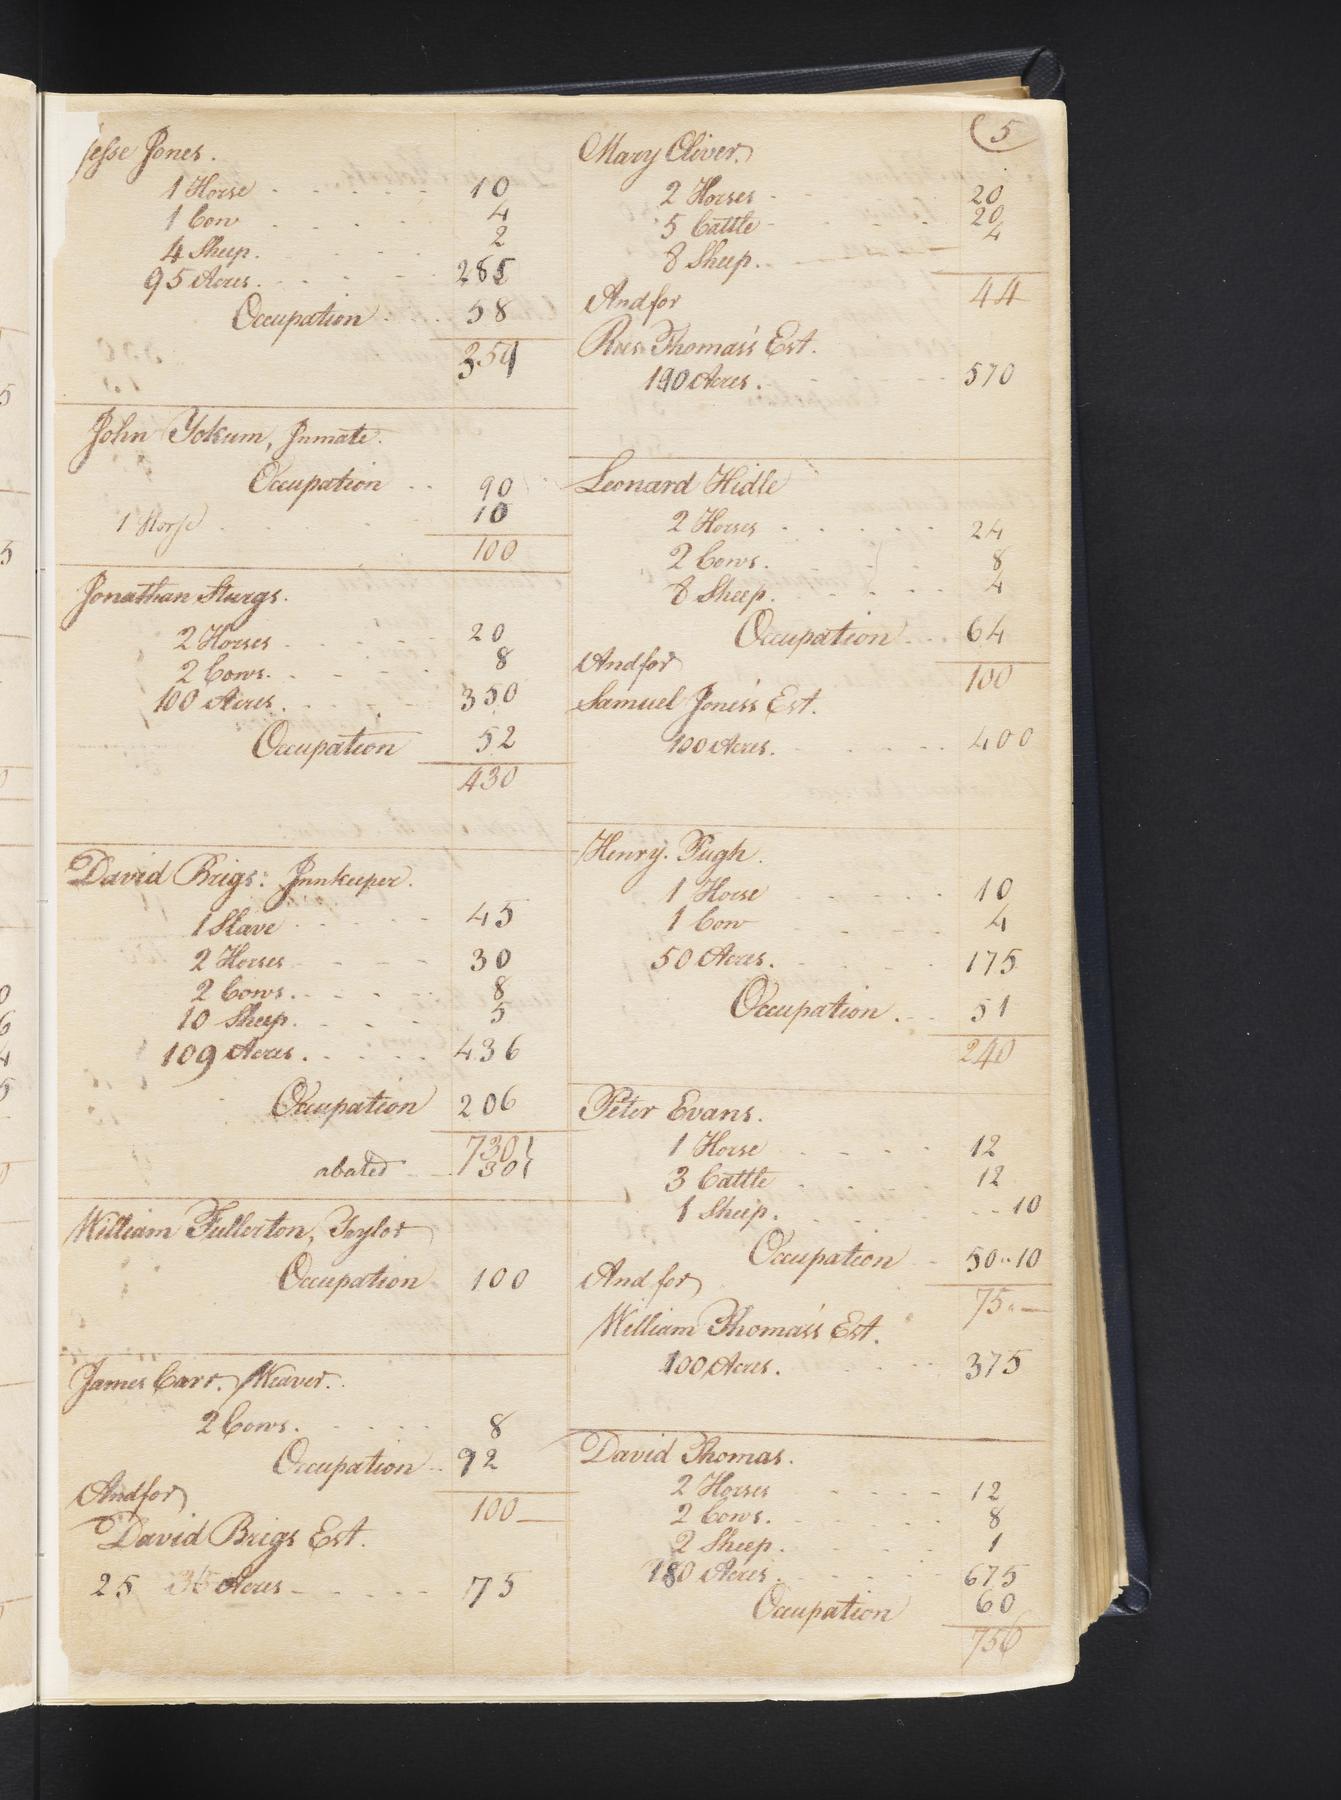 Jesse Jones.
1 Horse 10
1 Cow 4
4 Sheep. 2
95 Acres. 285
Occupation 58
359
John Yokum, Inmate.
Occupation 90
1 Horse 10
100
Jonathan Sturgs.
2 Horses 20
2 Cows. 8
100 Acres. 350
Occupation 52
430
David Brigs: Innkeeper.
1 Slave 45
2 Horses 30
2 Cows. 8
10 Sheep. 5
109 Acres. 436
Occupation 206
730
abated 30
William Fullerton, Taylor
Occupation 100
James Carr. Weaver.
2 Cows. 8
Occupation 92
And for 100
David Brigs Est.
25 Acres 75
5
Mary Oliver.
2 Horses 20
5 Cattle 20
8 Sheep. 4
And for 44
Rees Thomas's Est.
190 Acres. 570
Leonard Hidle
2 Horses 24
2 Cows. 8
8 Sheep. 4
Occupation 64
And for 100
Samuel Jones's Est.
100 Acres. 400
Henry Pugh.
1 Horse 10
1 Cow 4
50 Acres. 175
Occupation. 51
240
Peter Evans.
1 Horse 12
3 Cattle 12
1 Sheep. 10
Occupation 50..10
And for 75
William Thomas's Est.
100 Acres. 375
David Thomas.
2 Horses 12
2 Cows. 8
2 Sheep. 1
180 Acres. 675
Occupation 60
756